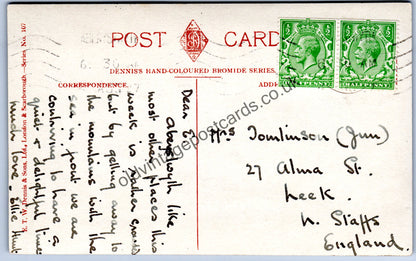 POST CARD
DENNIS'S HAND-COLOURED BROMIDE SERIES.
CORRESPONDENCE.
ADD
HALFPENNY
HALFPENNY
6. 30
Dear E
Aberystwyth like
most other places this
week is rather crowded
but by getting away to
the mountains with the
sea in front we are
contriving to have a
quiet & delightful time
much love - Ellie Hunt
Mrs Tomlinson (Jun)
27 Alma St.
Leek.
N. Staffs
England.
E. T. W. Dennis & Sons, Ltd., London & Scarborough.—Series, No. 107
oldvintagepostcards.co.uk